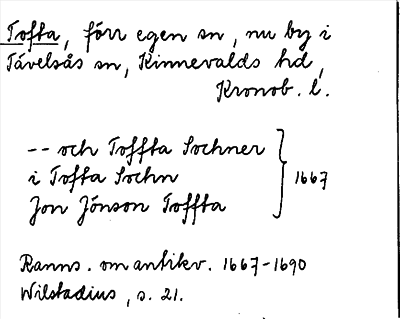 Tofta, förr egen sn, nu by i
Tävelsås sn, Kinnevalds hd,
Kronob. l.
-- och Toffta Sochner
i Tofta Sochn } 1667
Jon Jönson Toffta
Ranns. om antikv. 1667-1690
Wilstadius, s. 21.